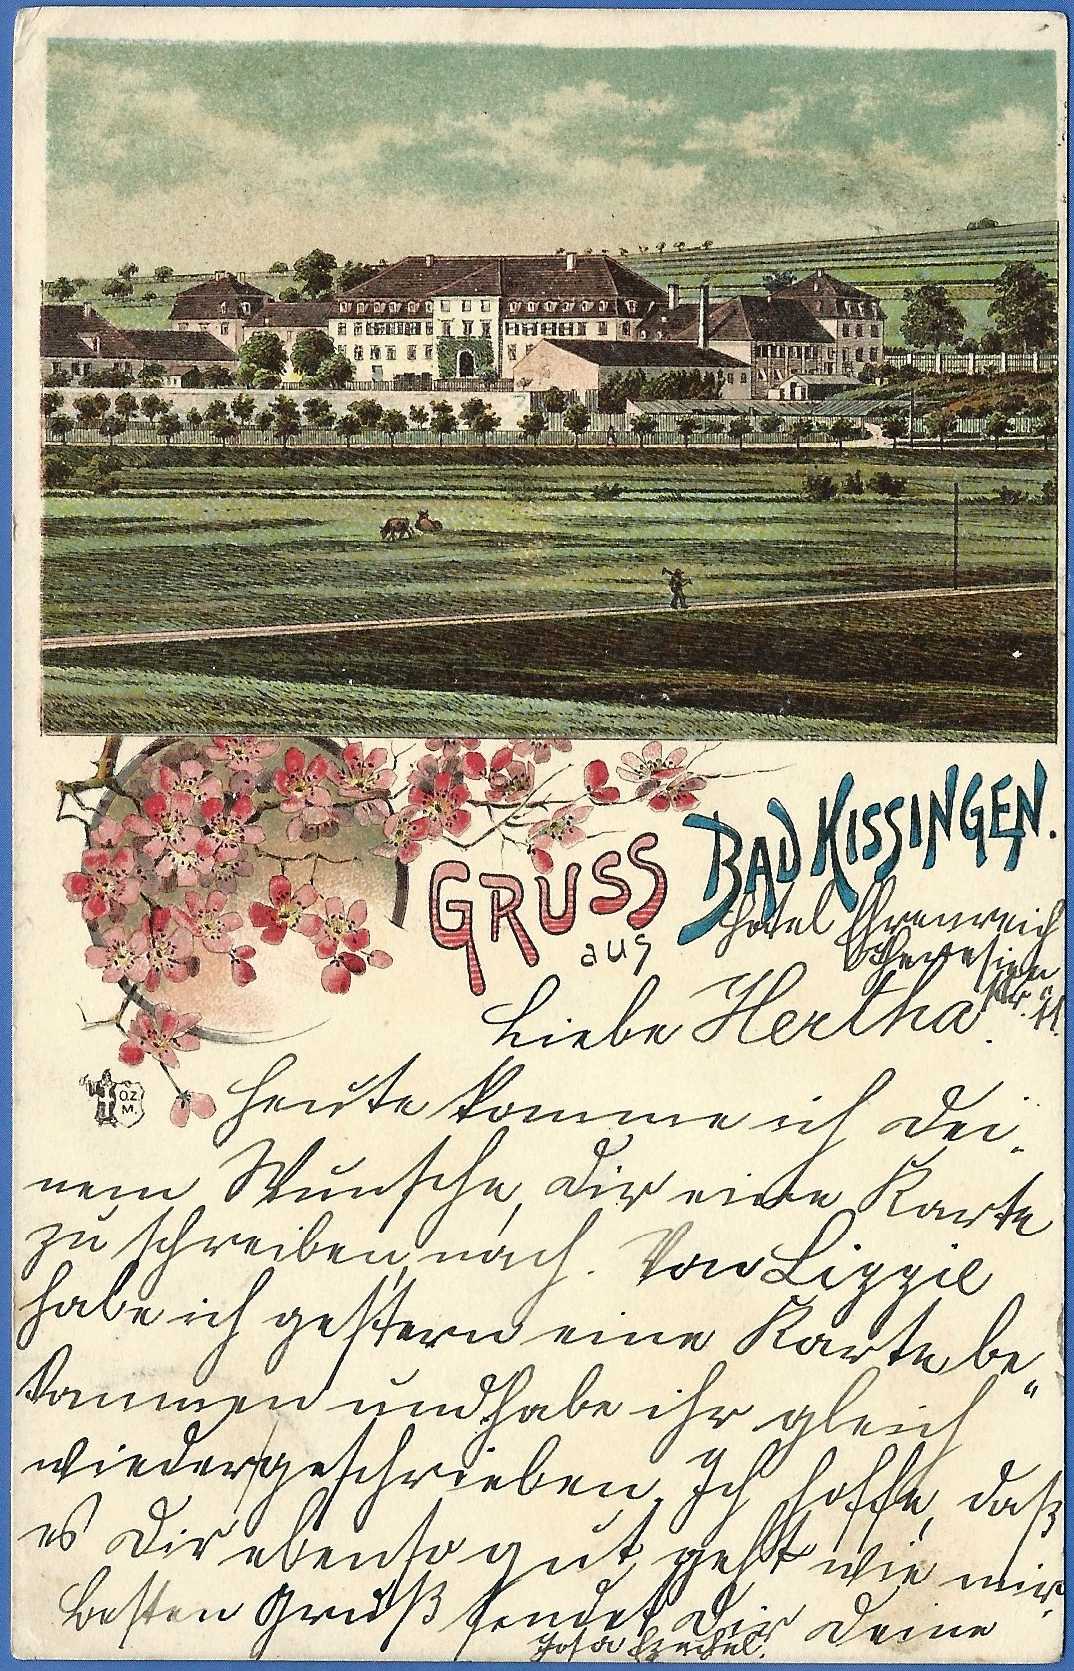 GRUSS
aus
BAD KISSINGEN.
Hotel Ehrenreich
Theresien
str. 11.
Liebe Hertha.
O.Z.
M.
Heute komme ich dei-
nem Wunsche, dir eine Karte
zu schreiben, nach. Von Lizzie
habe ich gestern eine Karte be-
kommen und habe ihr gleich
wiedergeschrieben. Ich hoffe, daß
es Dir ebenso gut geht wie mir.
Besten Gruß sendet Dir Deine
Josa